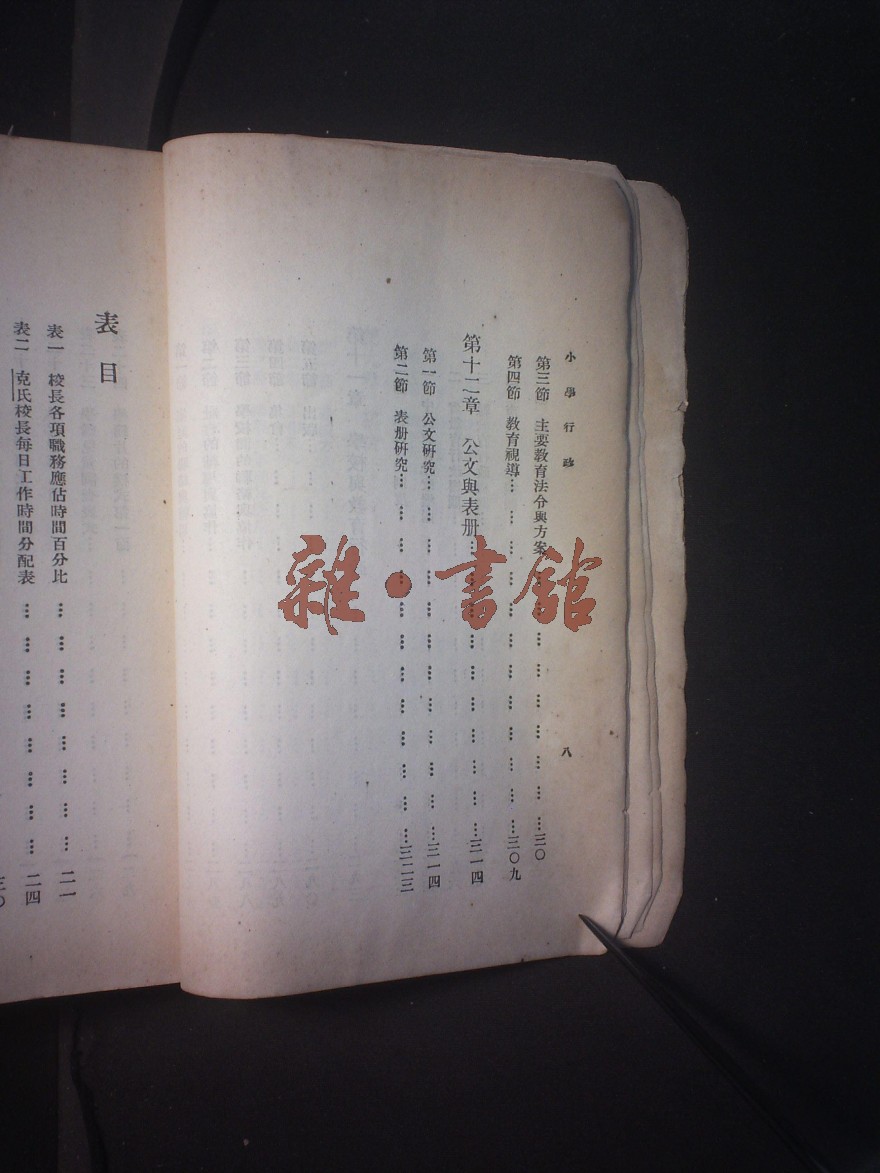 小學行政
八
第三節 主要教育法令與方案……三〇
第四節 教育視導……三〇九
第十二章 公文與表册……三一四
第一節 公文研究……三一四
第二節 表册研究……三二三
表目
表一 校長各項職務應佔時間百分比……二一
表二 克氏校長每日工作時間分配表……二四
雜·書館